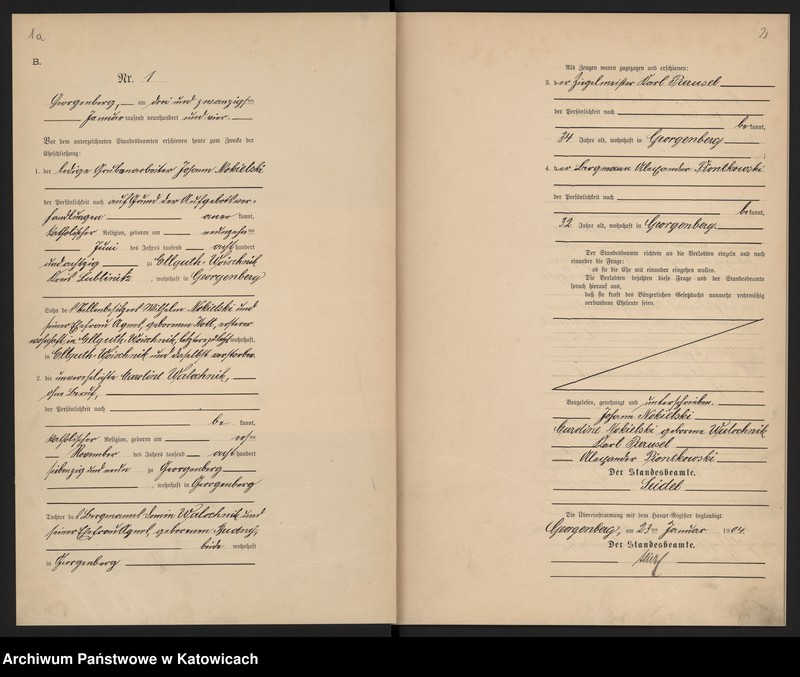 1a
B.
Nr. 1
Georgenberg, am drei und zwanzigsten
Januar tausend neunhundert und vier.
Vor dem unterzeichneten Standesbeamten erschienen heute zum Zwecke der
Eheschließung:
1. der ledige Grubenarbeiter Johann Nokielski
der Persönlichkeit nach auf Grund der Aufgebotsver-
handlungen aner kannt,
katholischer Religion, geboren am neunzehnten
Juni des Jahres tausend acht hundert
und achtzig zu Ellguth-Woischnik
Kreis Lublinitz, wohnhaft in Georgenberg
Sohn des Stellenbesitzers Wilhelm Nokielski und
seiner Ehefrau Agnes, geborenen Koll, ersterer
wohnhaft in Ellguth-Woischnik, letztere zuletzt wohnhaft
in Ellguth-Woischnik und daselbst verstorben.
2. die unverehelichte Caroline Walochnik,
ohne Beruf,
der Persönlichkeit nach
be kannt,
katholischer Religion, geboren am ersten
November des Jahres tausend acht hundert
siebenzig und neun zu Georgenberg
, wohnhaft in Georgenberg
Tochter des Bergmanns Walochnik und
seiner Ehefrau Agnes, geborenen
beide wohnhaft
in Georgenberg
2
Als Zeugen waren zugezogen und erschienen:
3. der Ziegelmeister Karl
der Persönlichkeit nach
be kannt,
34 Jahre alt, wohnhaft in Georgenberg
;
4. der Bergmann Alexander Piontkowski
der Persönlichkeit nach
be kannt,
32 Jahre alt, wohnhaft in Georgenberg.
Der Standesbeamte richtete an die Verlobten einzeln und nach
einander die Frage:
ob sie die Ehe mit einander eingehen wollen.
Die Verlobten bejahten diese Frage und der Standesbeamte
sprach hierauf aus,
daß sie kraft des Bürgerlichen Gesetzbuchs nunmehr rechtmäßig
verbundene Eheleute seien.
Vorgelesen, genehmigt und unterschrieben.
Johann Nokielski
Caroline Nokielski geborene Walochnik
Karl
Alexander Piontkowski
Der Standesbeamte.
Seidel
Die Übereinstimmung mit dem Haupt-Register beglaubigt.
Georgenberg, am 23ten Januar 1904.
Der Standesbeamte.
Archiwum Państwowe w Katowicach